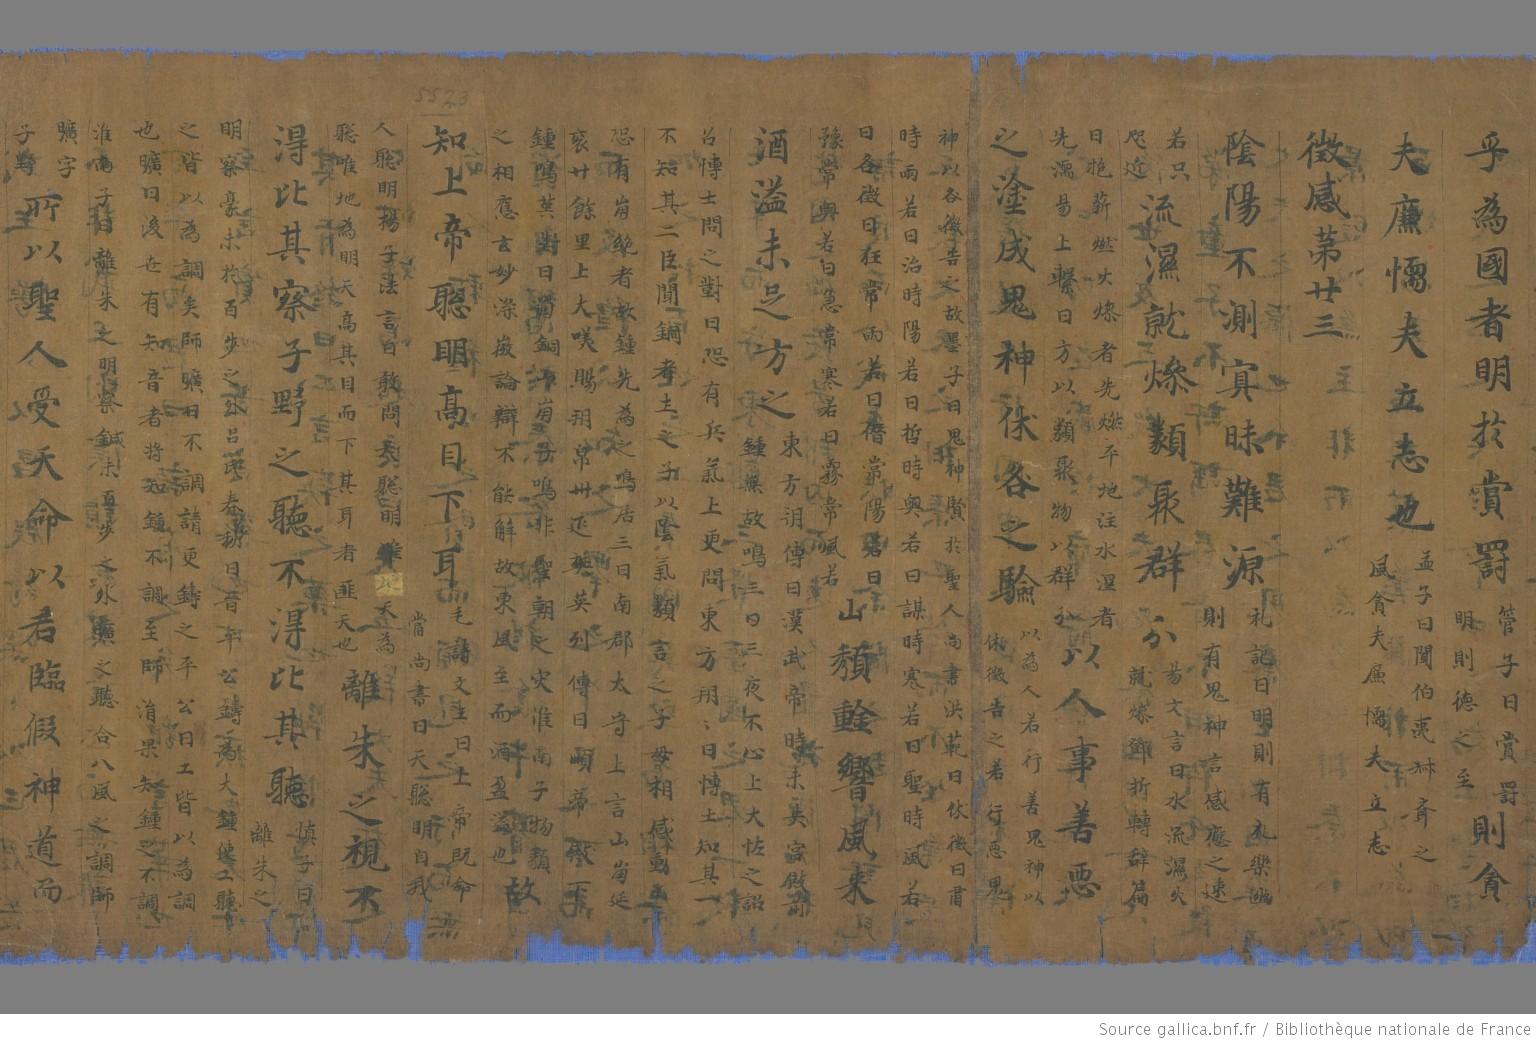 乎為國者明於賞罸
管子曰賞罸
明則德之至
則貪
夫廉懦夫立志也
孟子曰聞伯夷
之
風貪夫廉懦夫立志
徵感第廿三
陰陽不測㝠昧難源
礼記曰明則有礼樂幽
則有鬼神言感應之速
若只
咫近
流濕就燥類聚群分
易文言曰水流濕火
就燥鄧析轉辞篇
曰抱薪燃火燥者先燃平地注水濕者
先濡易上繫曰方以類聚物以群分
以人事善惡
以為人若行善鬼神以
休徵告之若行惡鬼
之塗成鬼神休咎之驗
神以咎徵告之故墨子曰鬼神賢於聖人尚書洪範曰休徵曰肅
時雨若曰治時陽若曰哲時奧若曰謀時寒若曰聖時風若
曰咎徵曰狂常雨若曰僭常陽若曰
豫常奧若曰急常寒若曰霧常風若
山頽
響風来
酒溢未足方之
東方朔傳曰漢武帝時未央宮
鍾無故鳴三日三夜不心上大怪之詔
召博士問之對曰恐有兵氣上更問東方朔〻曰博士知其一
不知其二臣聞銅者土之子以陰氣類言之子母相感動山
恐有崩絕者故鍾先為之鳴居三日南郡太守上言山崩延
袤廿餘里上大咲賜朔帛卅疋樊英列傳曰順帝
鍾鳴英對曰蜀銅山崩子鳴非聖朝之灾淮南子物類
之相應玄妙深微論辯不能解故東風至而酒盈溢也
故
知上帝聽明髙目下耳
毛詩文王曰上帝既命
當尚書曰天聽明自我
人聽明揚子法言曰敢問大聽明
天為
聽唯地為明天髙其目而下其耳者匪天也
離朱之視不
淂比其察子野之聽不淂比其聽
慎子曰
離朱之
明察豪末於百步之外吕氏春秋曰晉平公鑄為大鍾使工聽
之皆以為調矣師曠曰不調請更鑄之平公曰工皆以為調
也曠曰後世有知音者將知鍾不調至師涓果知鍾之不調
淮南子曰離朱之明察鍼末百步之外師曠之聽合八風之調師
曠字
子野
所以聖人受天命以君臨假神道而
5523
Source gallica.bnf.fr / Bibliothèque nationale de France